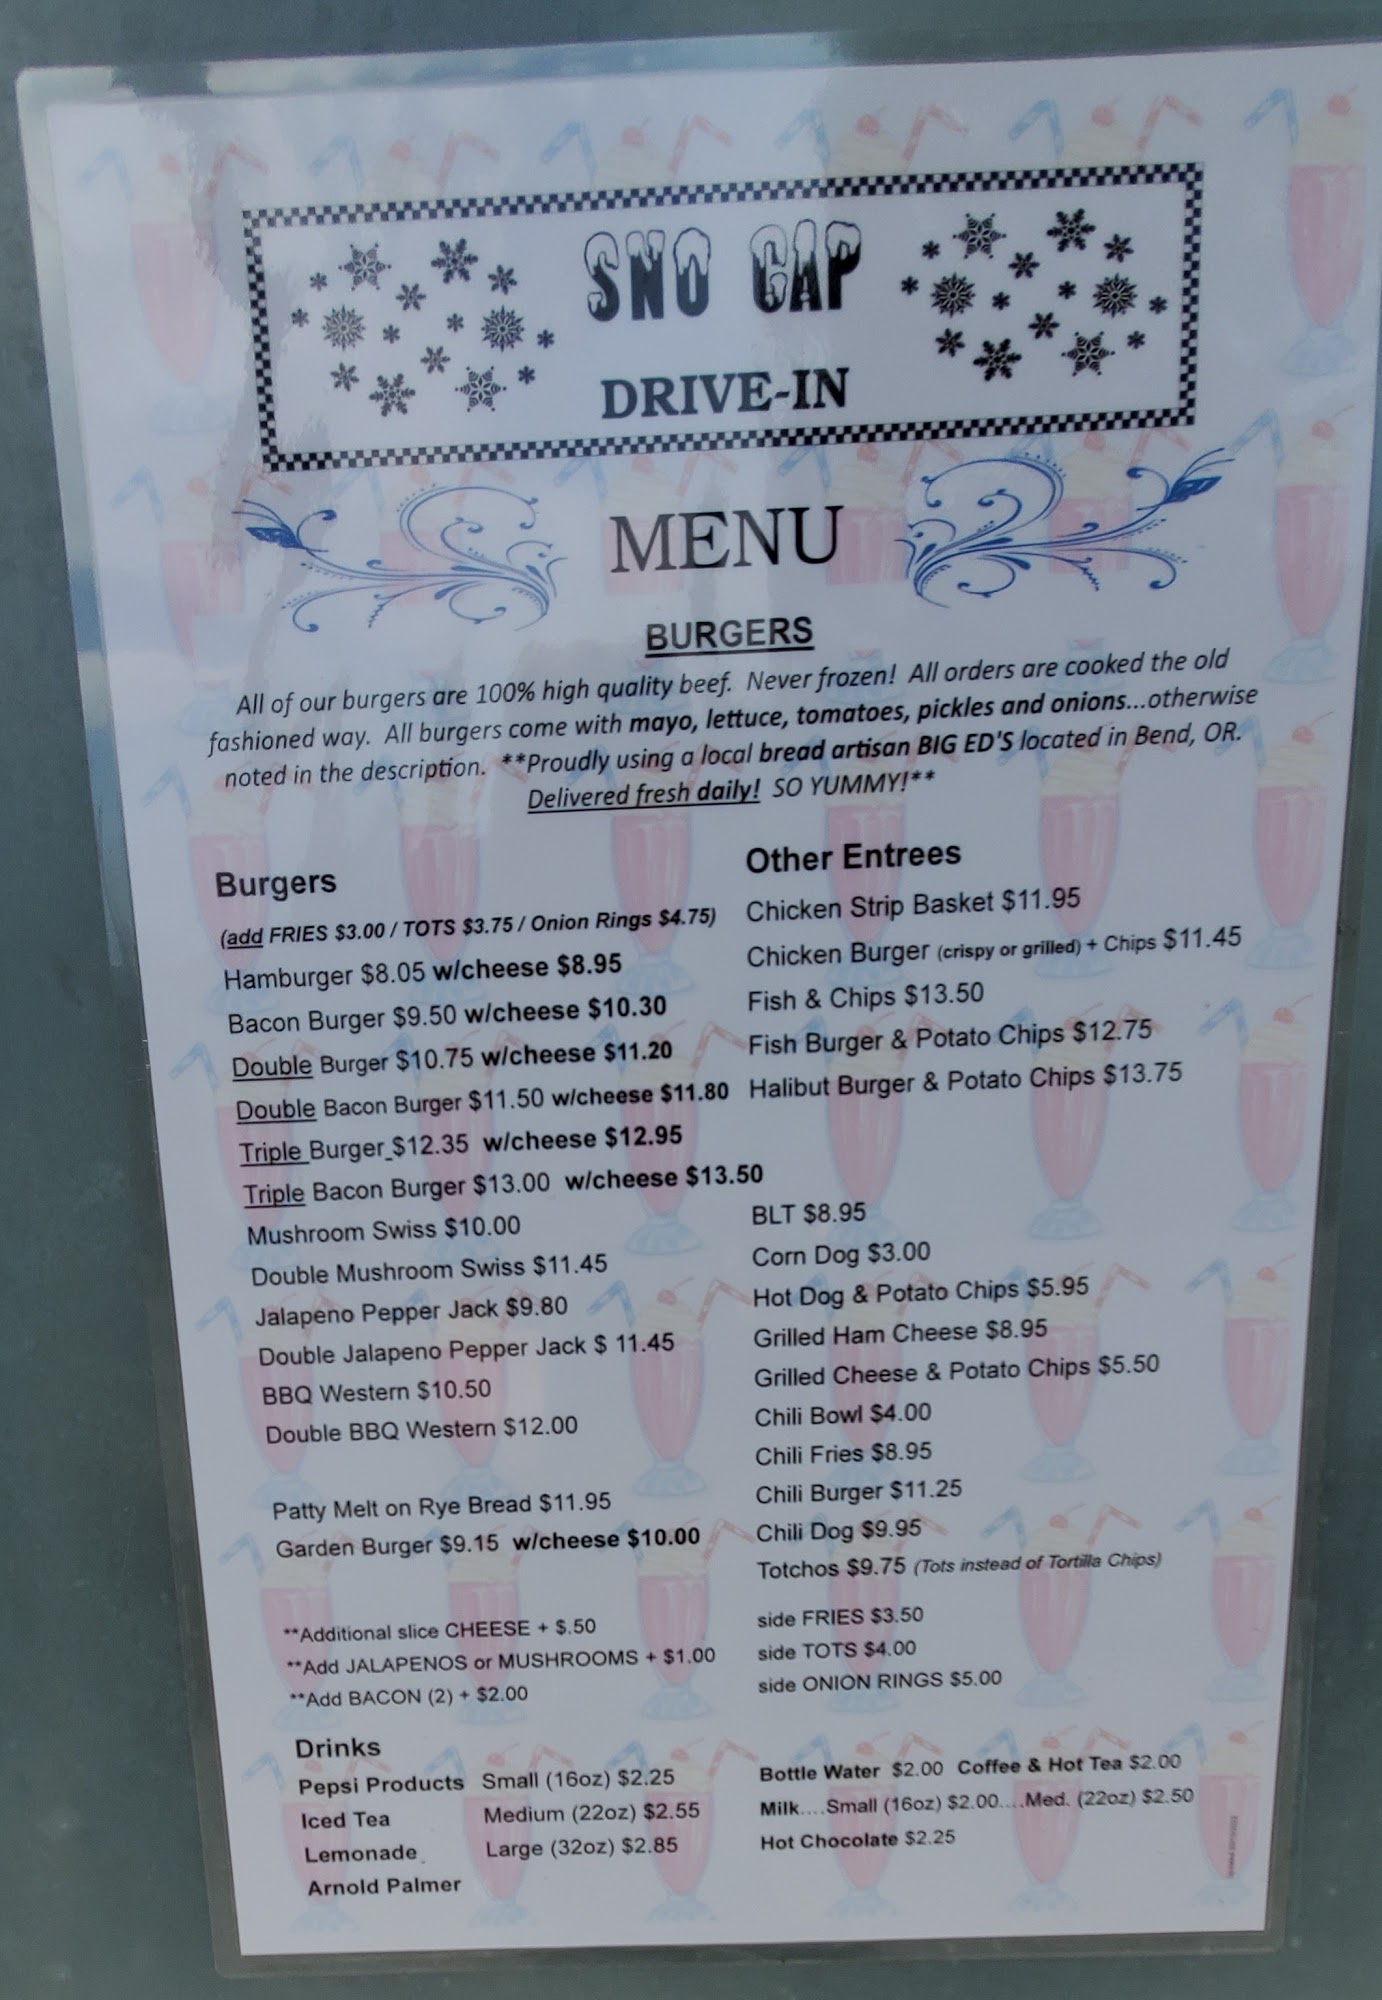 SNO CAP
DRIVE-IN
MENU
BURGERS
All of our burgers are 100% high quality beef. Never frozen! All orders are cooked the old
fashioned way. All burgers come with mayo, lettuce, tomatoes, pickles and onions...otherwise
noted in the description. **Proudly using a local bread artisan BIG ED'S located in Bend, OR.
Delivered fresh daily! SO YUMMY!**
Burgers
(add FRIES $3.00 / TOTS $3.75 / Onion Rings $4.75)
Hamburger $8.05 w/cheese $8.95
Bacon Burger $9.50 w/cheese $10.30
Double Burger $10.75 w/cheese $11.20
Double Bacon Burger $11.50 w/cheese $11.80
Triple Burger $12.35 w/cheese $12.95
Triple Bacon Burger $13.00 w/cheese $13.50
Mushroom Swiss $10.00
Double Mushroom Swiss $11.45
Jalapeno Pepper Jack $9.80
Double Jalapeno Pepper Jack $ 11.45
BBQ Western $10.50
Double BBQ Western $12.00
Patty Melt on Rye Bread $11.95
Garden Burger $9.15 w/cheese $10.00
**Additional slice CHEESE + $.50
**Add JALAPENOS or MUSHROOMS + $1.00
**Add BACON (2) + $2.00
Other Entrees
Chicken Strip Basket $11.95
Chicken Burger (crispy or grilled) + Chips $11.45
Fish & Chips $13.50
Fish Burger & Potato Chips $12.75
Halibut Burger & Potato Chips $13.75
BLT $8.95
Corn Dog $3.00
Hot Dog & Potato Chips $5.95
Grilled Ham Cheese $8.95
Grilled Cheese & Potato Chips $5.50
Chili Bowl $4.00
Chili Fries $8.95
Chili Burger $11.25
Chili Dog $9.95
Totchos $9.75 (Tots instead of Tortilla Chips)
side FRIES $3.50
side TOTS $4.00
side ONION RINGS $5.00
Drinks
Pepsi Products Small (16oz) $2.25
Iced Tea Medium (22oz) $2.55
Lemonade Large (32oz) $2.85
Arnold Palmer
Bottle Water $2.00 Coffee & Hot Tea $2.00
Milk....Small (16oz) $2.00....Med. (22oz) $2.50
Hot Chocolate $2.25